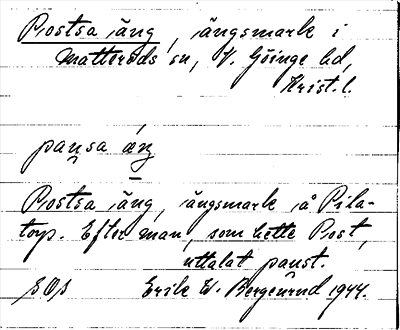 Postsa äng, ängsmark i
Matteröds sn, V. Göinge hd,
Krist. l.
pansa áŋ
Postsa äng, ängsmark å Pila-
torp. Efter man, som hette Post,
uttalat pånst.
SOs Erik W. Bergenrud 1944.